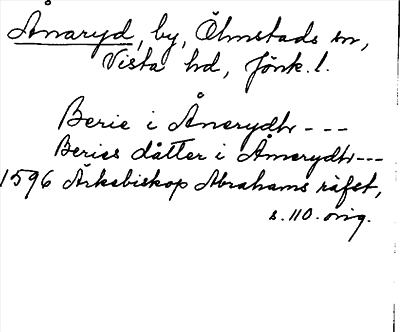 Ånaryd, by, Ölmstads sn,
Vista hd, Jönk. l.
Berie i Ånerydh ---
Beries dåtter i Åmerydh ---
1596 Ärkebiskop Abrahams räfst,
s. 110. orig.